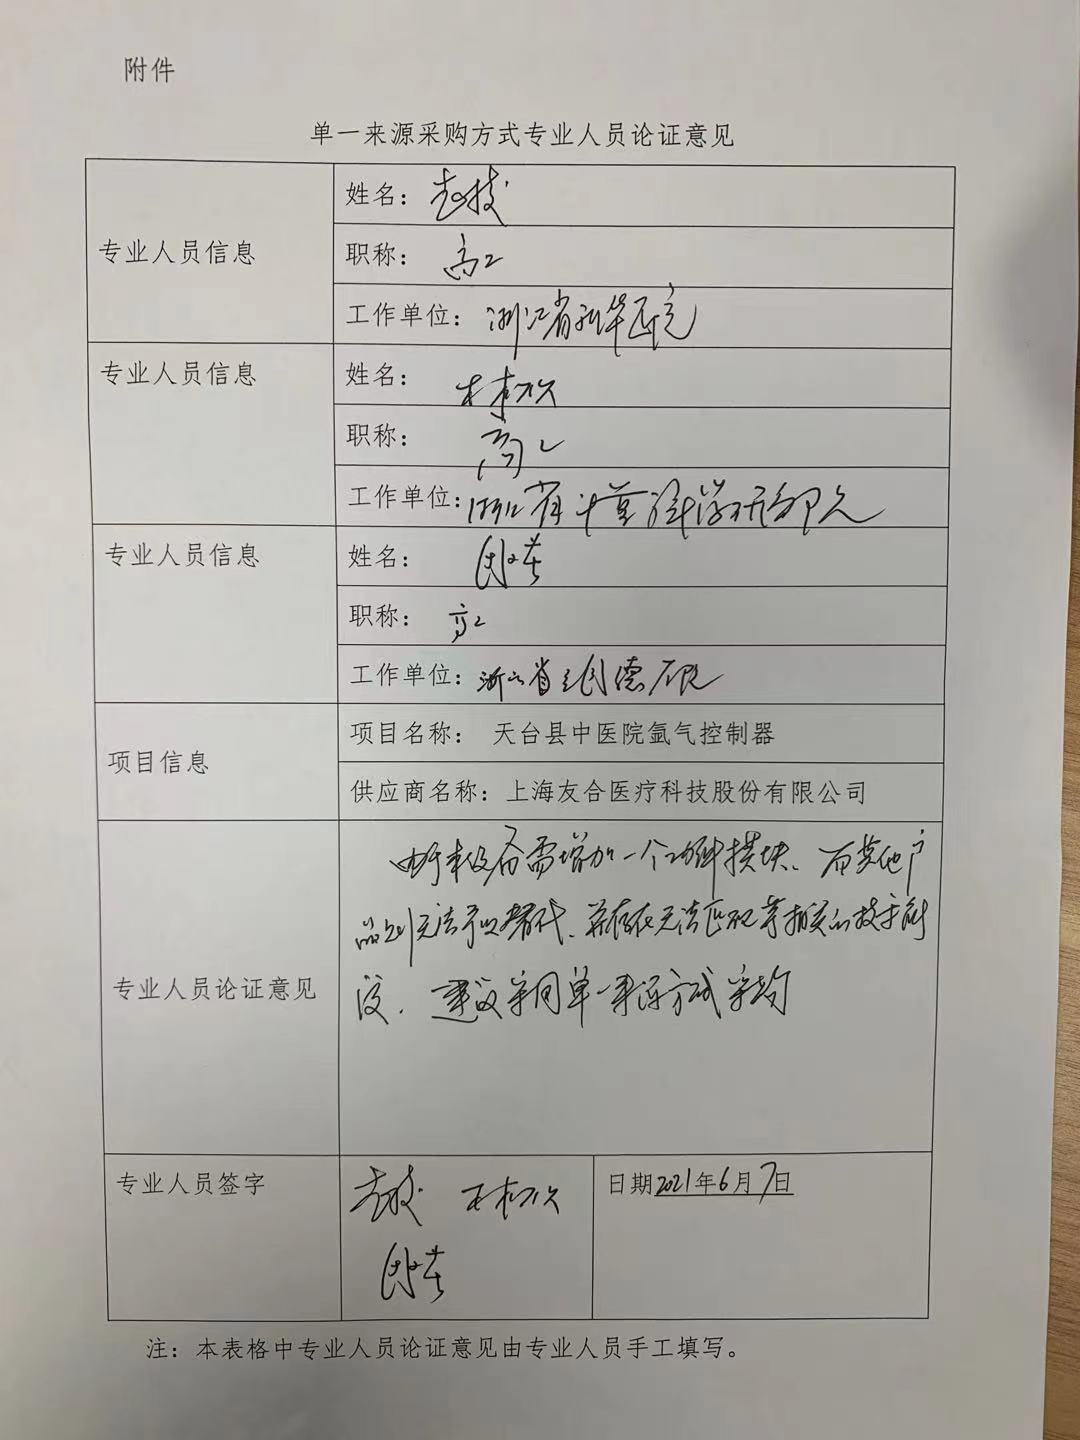 附件
单一来源采购方式专业人员论证意见
专业人员信息
姓名：
职称：高工
工作单位：浙江省新华医院
专业人员信息
姓名：
职称：高工
工作单位：浙江省计量科学研究院
专业人员信息
姓名：
职称：高工
工作单位：浙江省立同德医院
项目信息
项目名称： 天台县中医院氩气控制器
供应商名称：上海友合医疗科技股份有限公司
专业人员论证意见
由于本设备需增加一个功能模块、而其他产
品则无法予以替代、并存在无法匹配等相关的技术
建议采用单一来源方式采购
专业人员签字
日期2021年6月7日
注：本表格中专业人员论证意见由专业人员手工填写。